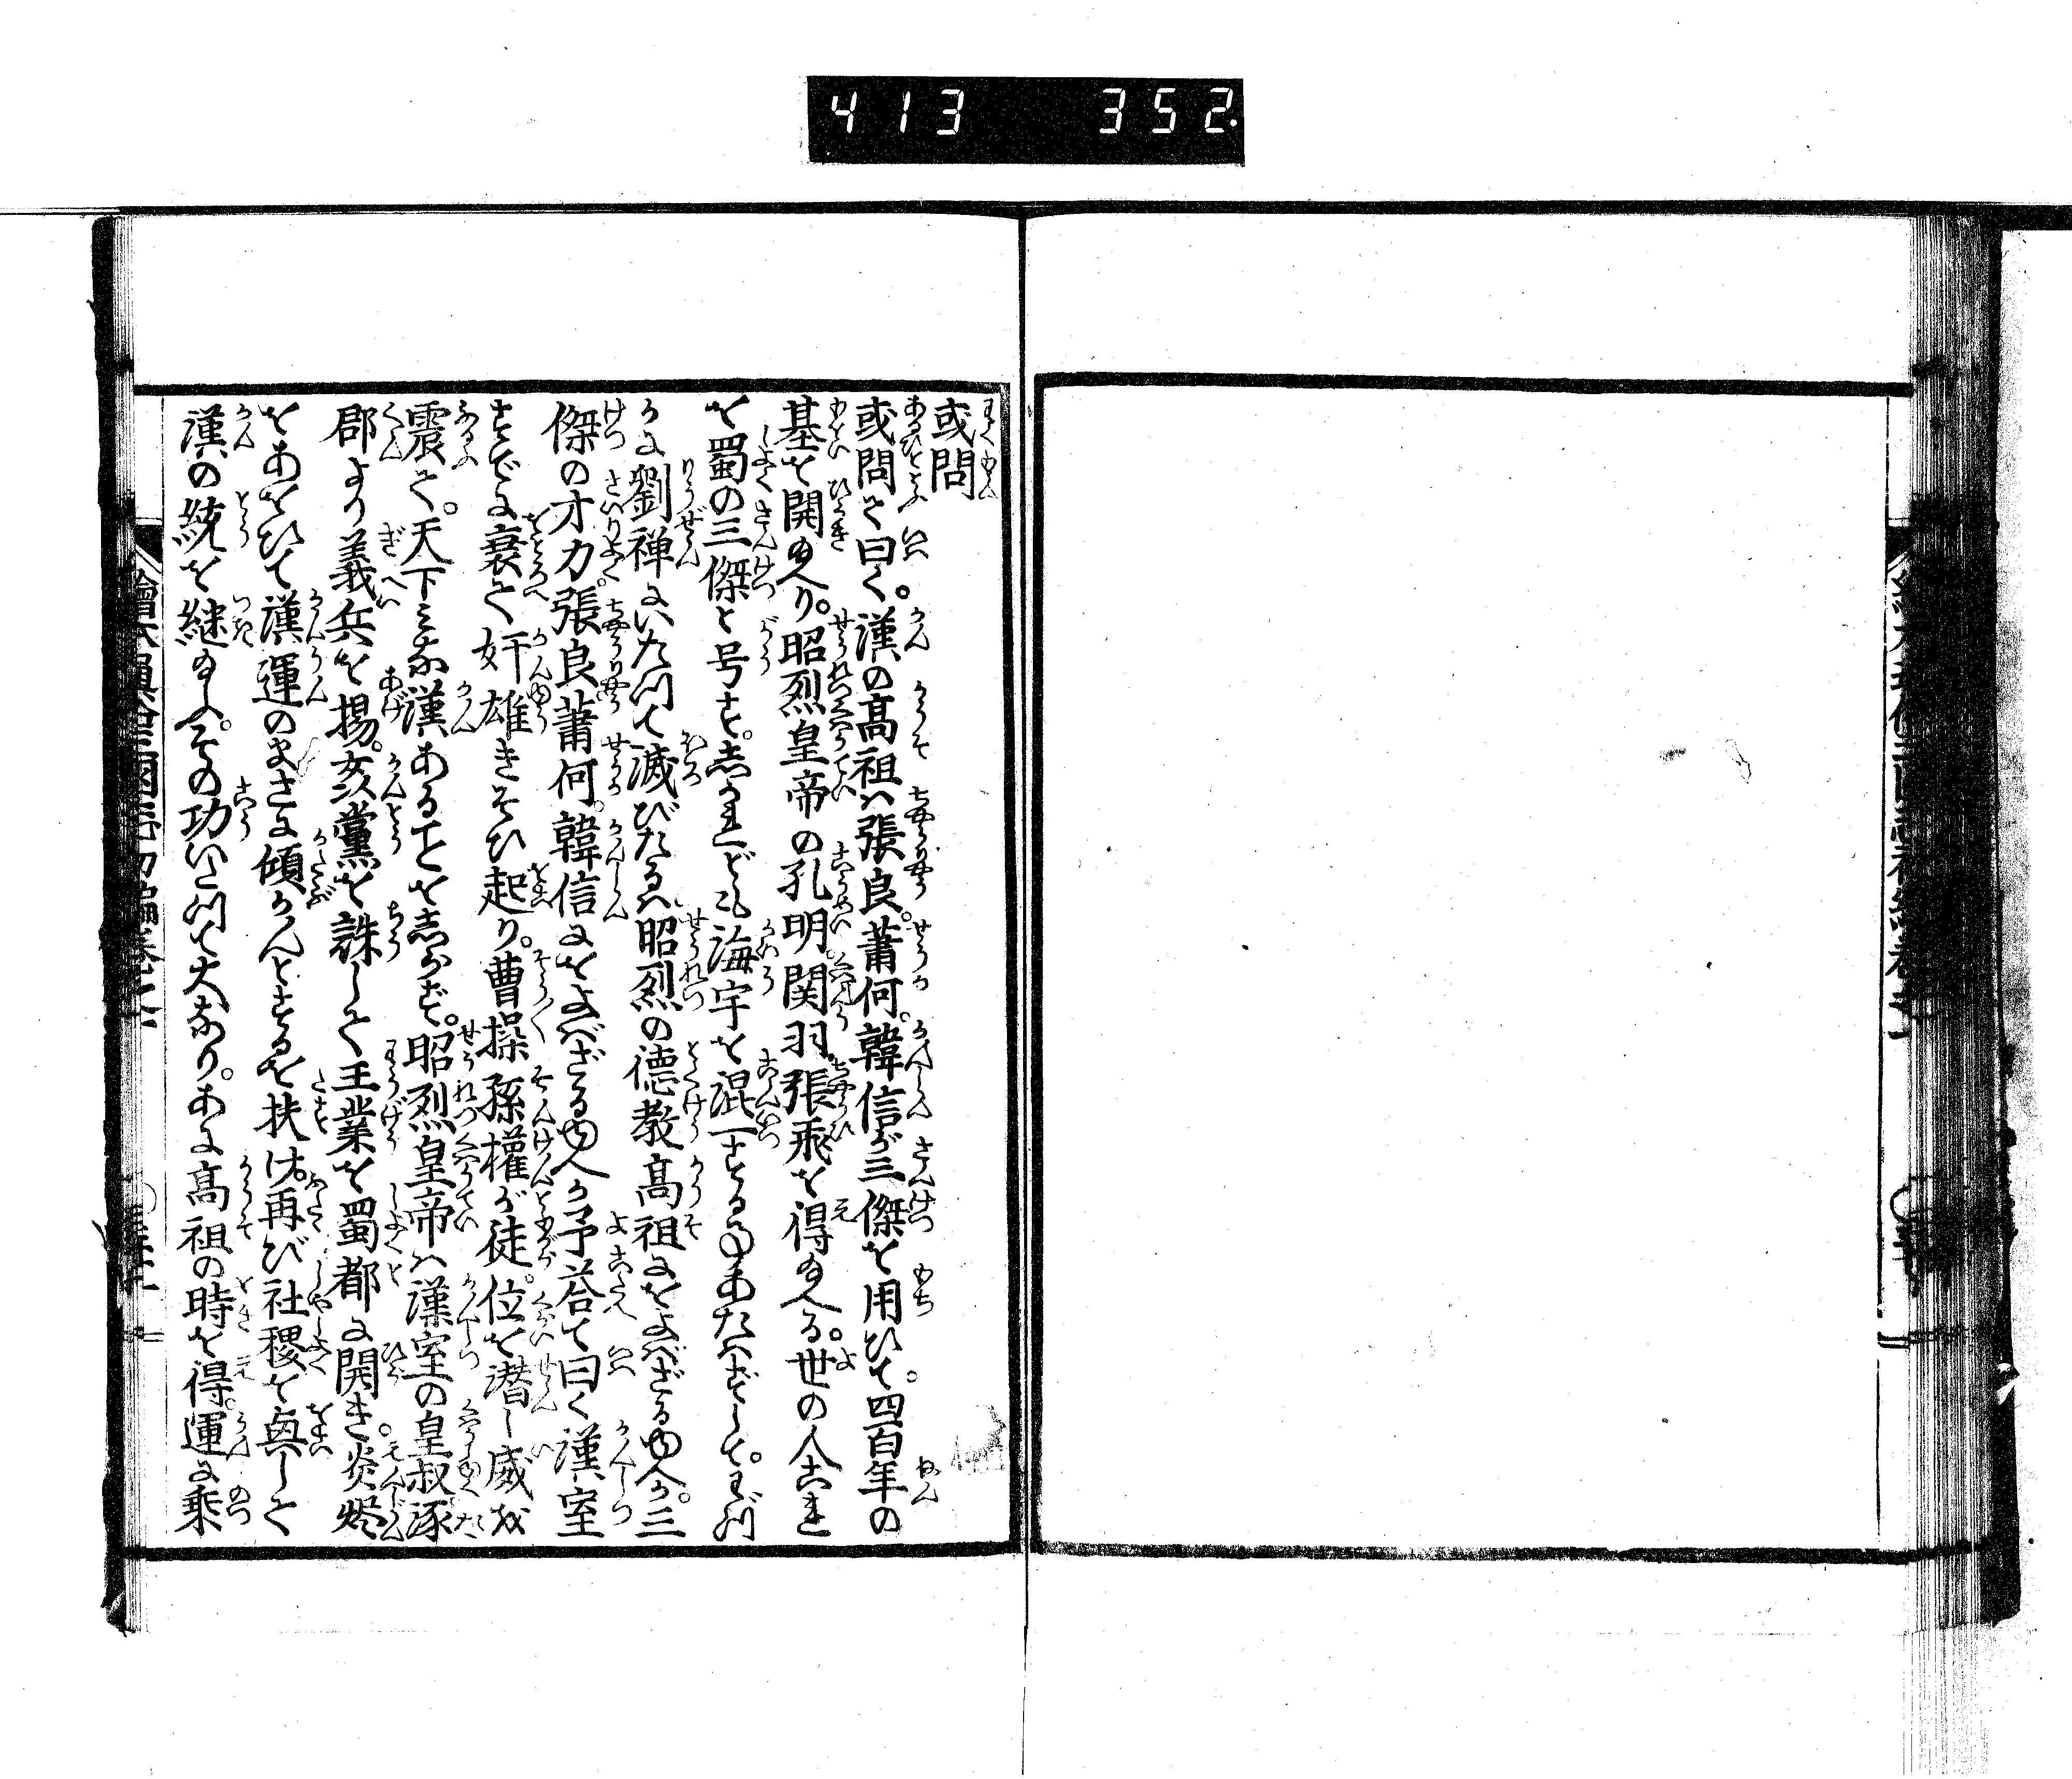 413 352
或問
或問て曰く。漢の髙祖ハ張良。蕭何。韓信が三傑を用ひて。四百年の
基を開給へり。昭烈皇帝の孔明。関羽。張飛を得給へる。世の人これ
を蜀の三傑と号す。しかれども海宇を混一することあたハずして。わづ
かに劉禅にいたつて滅びたるハ昭烈の徳教髙祖におよバざるゆへか。三
傑の才力。張良蕭何。韓信におよバざるゆへか予荅て曰く漢室
すでに衰て奸雄きそひ起り。曹操孫權が徒。位を潜し威を
震て。天下ミな漢あることをしらず。昭烈皇帝ハ漢室の皇叔。涿
郡より義兵を揚。姦黨を誅して王業を蜀都に開き。炎燼
をあをひて漢運のまさに傾かんとするを扶け。再び社稷を興して
漢の統を継給ふ。その功いたつて大なり。あに髙祖の時を得。運に乗